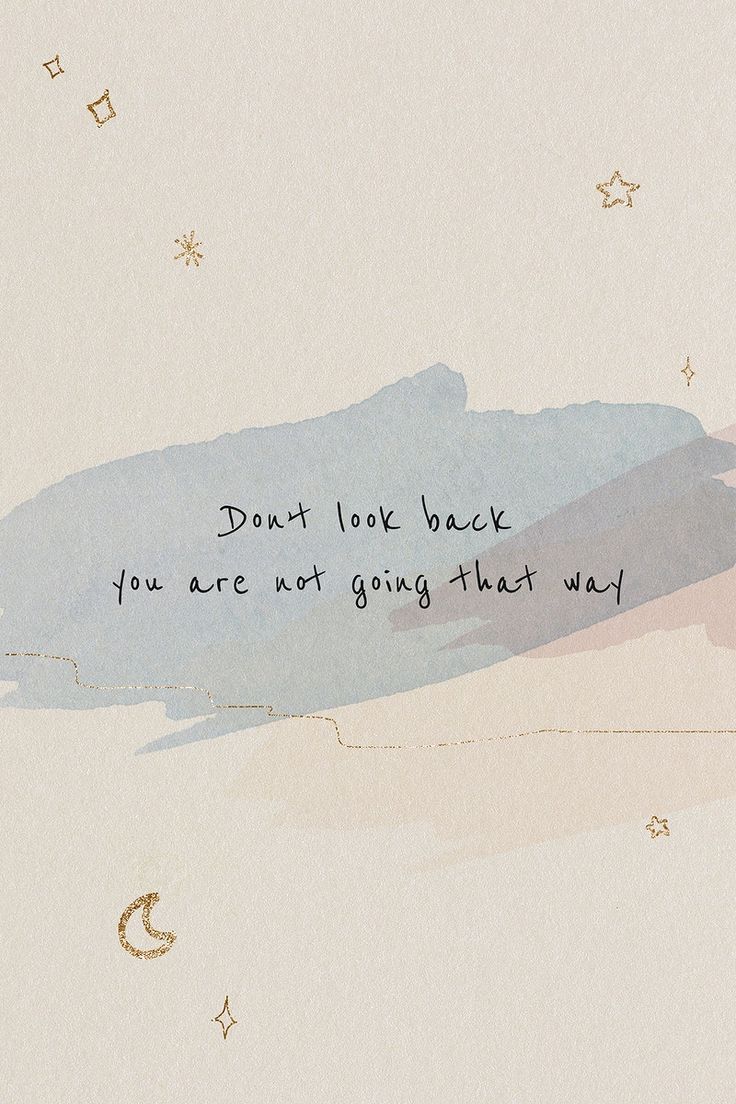 Don't look back
you are not going that way